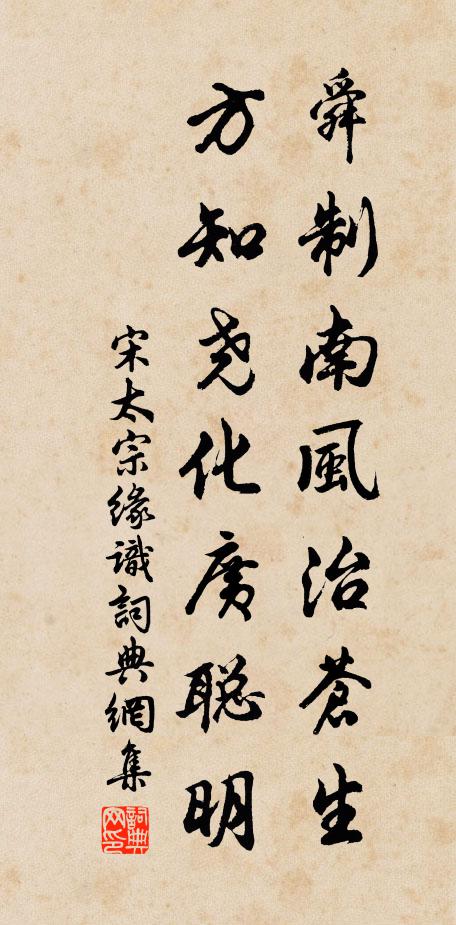 舜制南風治蒼生
方知尧化廣聪明
宋太宗缘識詞典網集
詞典網印